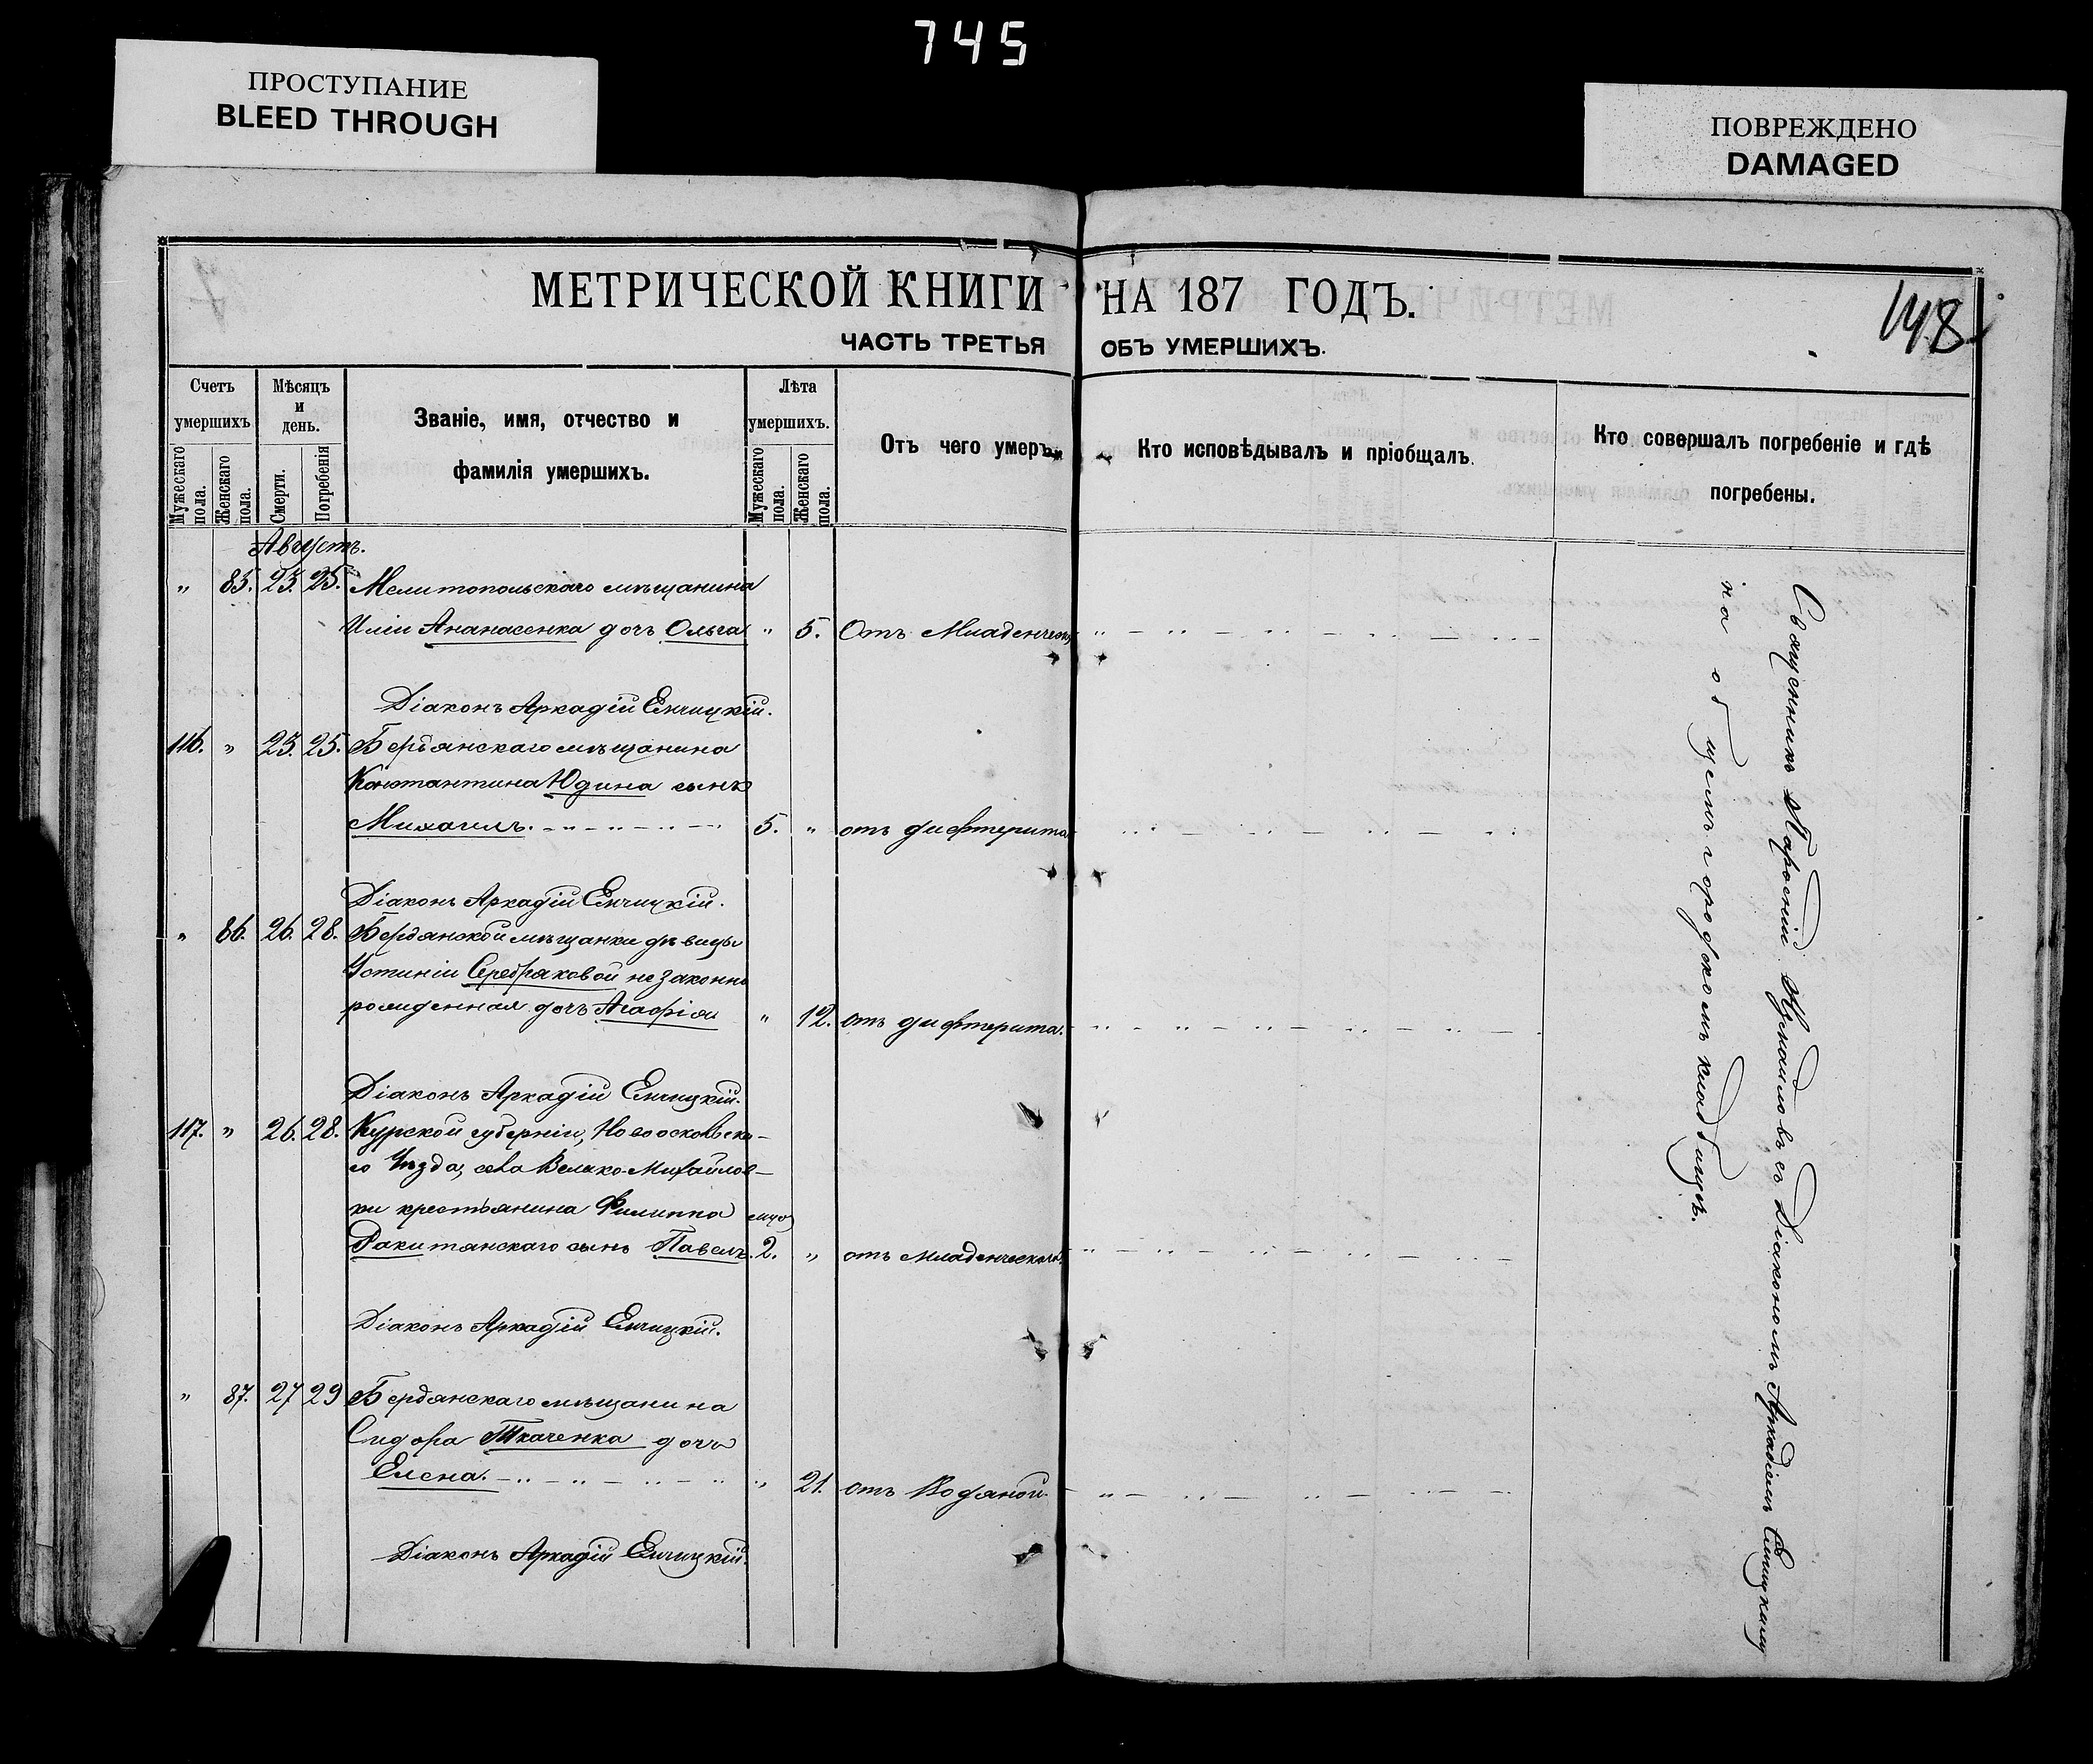 745
ПРОСТУПАНИЕ
BLEED THROUGH
ПОВРЕЖДЕНО
DAMAGED
МЕТРИЧЕСКОЙ КНИГИ НА 187 ГОДЪ.
148
ЧАСТЬ ТРЕТЬЯ ОБЪ УМЕРШИХЪ.
Счетъ умершихъ
Мужескаго пола.
Женскаго пола.
Мѣсяцъ и день.
Смерти.
Погребенія
Званіе, имя, отчество и
фамилія умершихъ.
Лѣта умершихъ.
Мужескаго пола.
Женскаго пола.
Отъ чего умеръ.
Кто исповѣдывалъ и пріобщалъ.
Кто совершалъ погребеніе и гдѣ
погребены.
Августъ.
" 85. 23. 25. Мелитопольскаго мѣщанина
Иліи Ананасенка дочь Ольга " 5. Отъ Младенческ
Діаконъ Аркадій Енчицкій.
116. " 23. 25. Бердянскаго мѣщанина
Константина Юдина сынъ
Михаилъ. 5. " отъ дифтерита
Діаконъ Аркадій Енчицкій.
" 86. 26. 28. Бердянской мѣщанки дѣвицы
Устиніи Серебряковой незаконно
рожденная дочь Агафія " 12. отъ дифтерита.
Діаконъ Аркадій Енчицкій.
117. " 26. 28. Курской губерніи, Новооскольска-
го Уѣзда, села Велико-Михайлов-
ки крестьянина Филиппа
Ракитянскаго сынъ Павелъ. 2. " отъ младенческаго
Діаконъ Аркадій Енчицкій.
" 87. 27 29 Бердянскаго мѣщанина
Сидора Ткаченка дочь
Елена. " 21. отъ Водяной.
Діаконъ Аркадій Енчицкій.
Священникъ Парфеній съ Діакономъ Аркадіемъ Енчицкимъ
на общемъ городскомъ кладбищѣ.